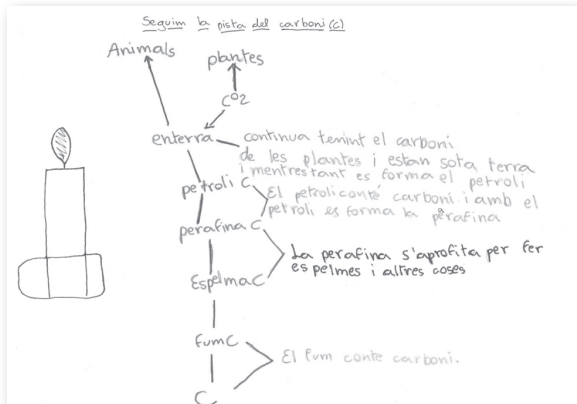 Seguim la pista del carboni (c)
Animals
plantes
CO2
enterra
continua tenint el carboni
de les plantes i estan sota terra
i mentrestant es forma el petroli
petroli C
El petroli conté carboni i amb el
petroli es forma la perafina
perafina C
La perafina s'aprofita per fer
espelmes i altres coses
Espelma C
fum C
El fum conte carboni.
C